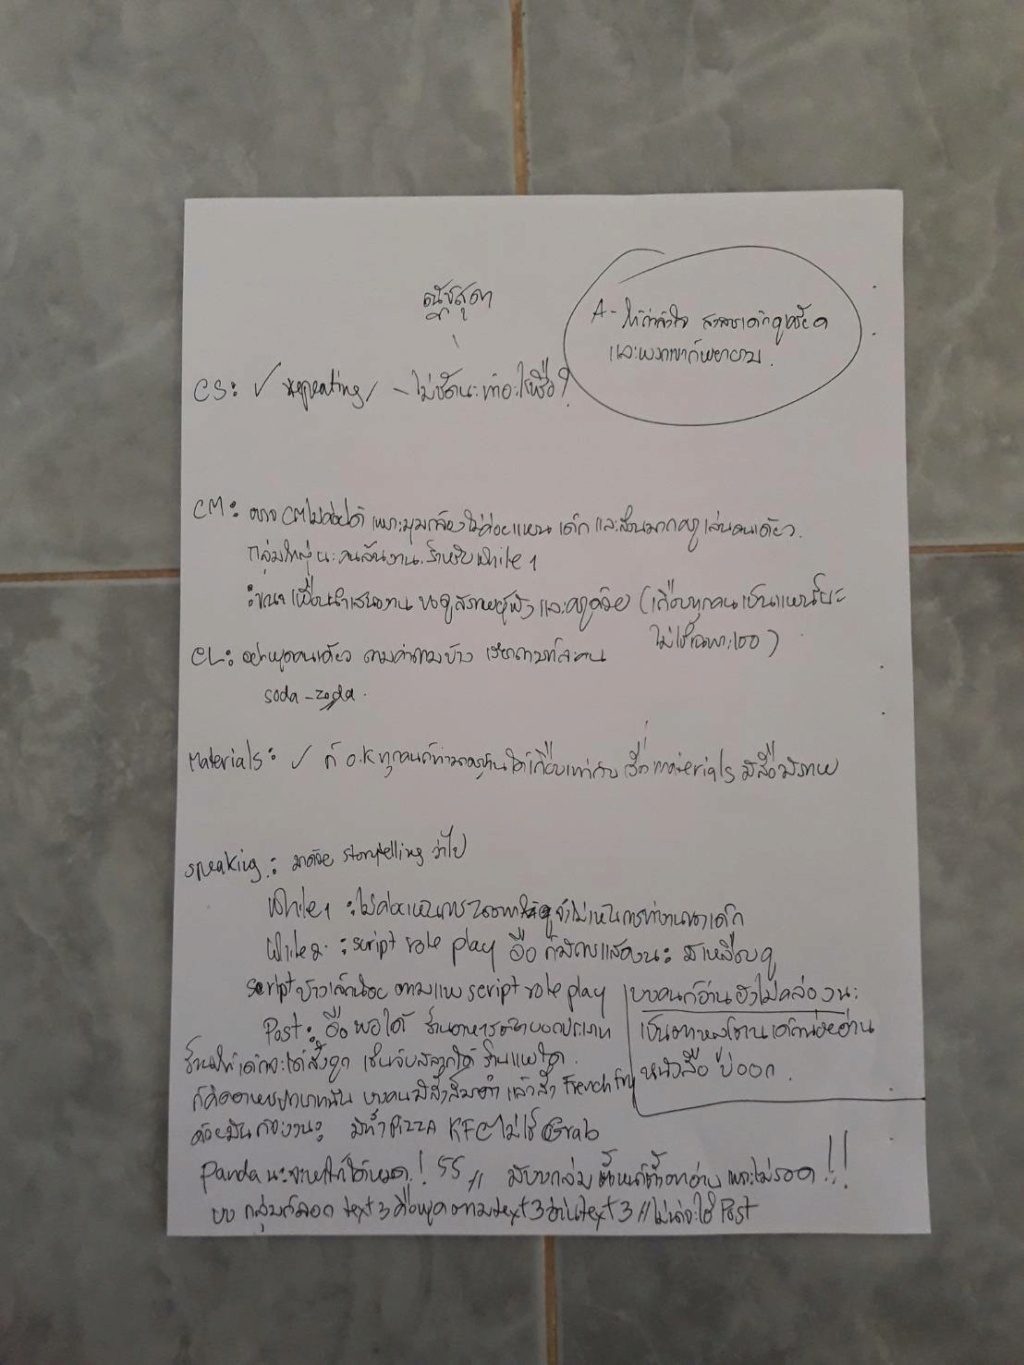 ณัชสุดา
A - ให้กำลังใจ สงสารเด็กดูเครียด
และพวกเขาก็พยายาม.
CS: ✓ repeating / - ไม่ชัดนะ ทำอะไรหรือ?
CM: ตรวจ CM ไม่ค่อยได้ เพราะมุมกล้องไม่ค่อยแพน เด็ก และส่วนมากครูเล่นคนเดียว.
กลุ่มใหญ่นะ คนล้นงาน. สำหรับ while 1
: ขณะเพื่อนนำเสนองาน ขอดูสภาพผู้ฟัง และครูด้วย (เกือบทุกคนเป็นแบบนี้นะ
ไม่ใช่เฉพาะเธอ)
CL: อย่าพูดคนเดียว ถามคำถามบ้าง เรียกถามทีละคน
soda - zoda.
Materials: ✓ ก็ O.K ทุกคนก็ทำมาตรฐานได้เกือบเท่ากับ เรื่อง materials มีสื่อ มีภาพ
speaking: มาด้วย storytelling ว่าไป
While 1 : ไม่ค่อยเห็นการ จึงไม่เห็นการทำงานของเด็ก
While 2 : script role play อือ ก็มีการแสดงนะ มีเหลือบดู
script บ้างเล็กน้อย ตามแบบ script role play
บางคนก็อ่านยังไม่คล่องนะ
เป็นตาหลกโตนเด็กน้อยอ่าน
หนังสือ บ่ออก.
Post: อือ พอได้ ร้านอาหาร บอกประเภท
ร้านให้เด็กจะได้สั่งถูก เช่นจับสลากได้ ร้านแบบใด.
ก็คืออาหารประเภทนั้น บางคนมีสั่งส้มตำ แล้วสั่ง French fry
ด้วยมันก็งงนะ มีทั้ง PIZZA KFC ไม่ใช่ Grab
Panda นะจะหาได้หมด! 55 // มีบางกลุ่ม ตั้งหน้าตั้งตาอ่าน เพราะไม่รอด!!
บางกลุ่มก็ลอก text 3 คือพูดตาม text 3 อ่าน text 3 // ไม่น่าจะใช่ Post